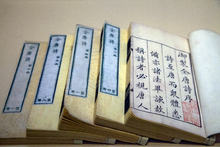 御製全唐詩序
詩至唐而衆體悉
備亦諸法畢該故
稱詩者必視唐人
全唐詩
全唐詩
全唐詩
全唐詩